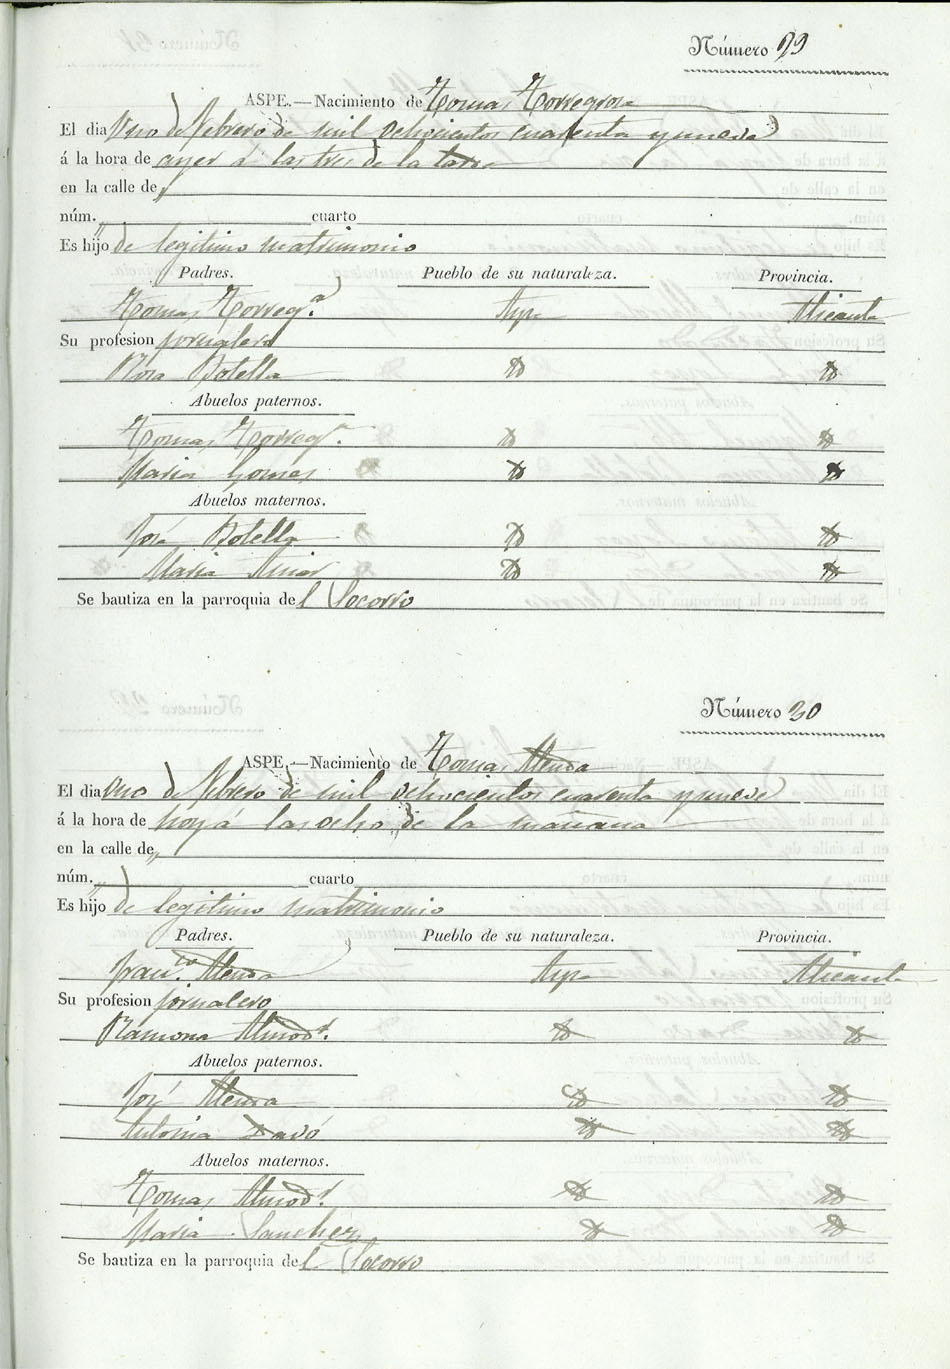 Número 29
ASPE.—Nacimiento de Tomas Torregrosa
El dia Uno de febrero de mil ochocientos cuarenta y nueve
á la hora de ayer á las tres de la tarde
en la calle de "
núm. " cuarto
Es hijo de legitimo matrimonio
Padres. Pueblo de su naturaleza. Provincia.
Tomas Torregª. Aspe Alicante
Su profesion jornalero
Rosa Botella id id
Abuelos paternos.
Tomas Torregª. id id
Maria Gomes id id
Abuelos maternos.
José Botella id id
Maria id id
Se bautiza en la parroquia del Socorro
Número 30
ASPE.—Nacimiento de Tomas Alenda
El dia uno de febrero de mil ochocientos cuarenta y nueve
á la hora de hoy á las ocho de la mañana
en la calle de "
núm. " cuarto
Es hijo de legitimo matrimonio
Padres. Pueblo de su naturaleza. Provincia.
Franco. Alenda Aspe Alicante
Su profesion jornalero
Ramona Almodr. id id
Abuelos paternos.
José Alenda id id
Antonia Davó id id
Abuelos maternos.
Tomas Almodr. id id
Maria Sanchez id id
Se bautiza en la parroquia del Socorro